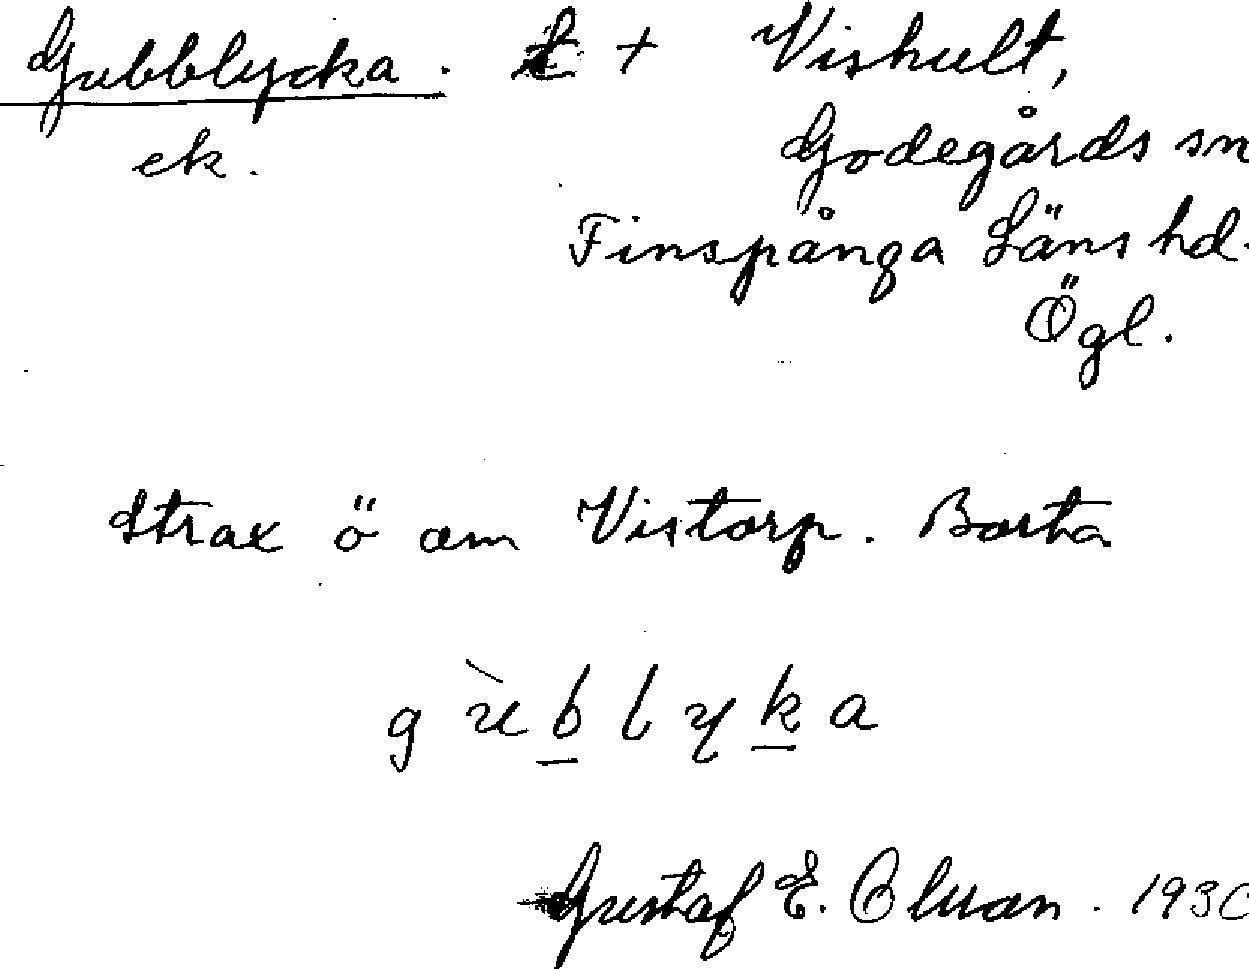 Gubblycka. t + Vishult,
ek. Godegårds sn
Finspånga Läns hd.
Ögl.
Strax ö om Vistorp. Borta.
g ù b l y k a
Gustaf E. Olson. 1930